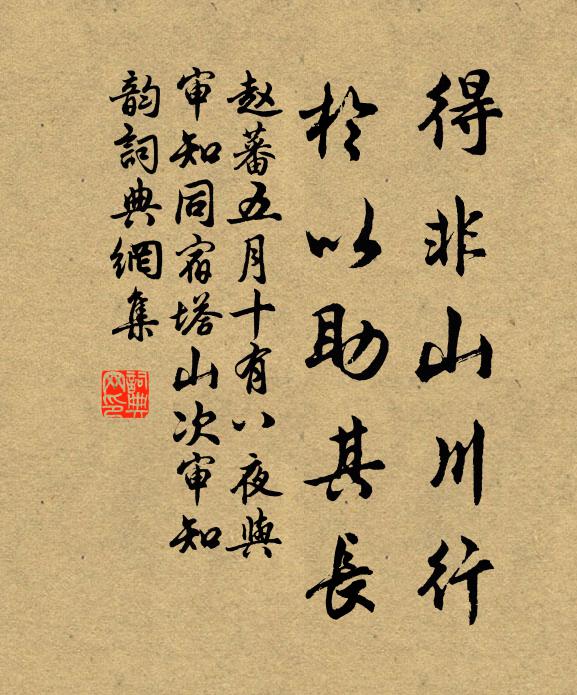 得非山川行
於以助其長
赵蕃五月十有八夜與
审知同宿塔山次审知
韵詞典網集
詞典
网印